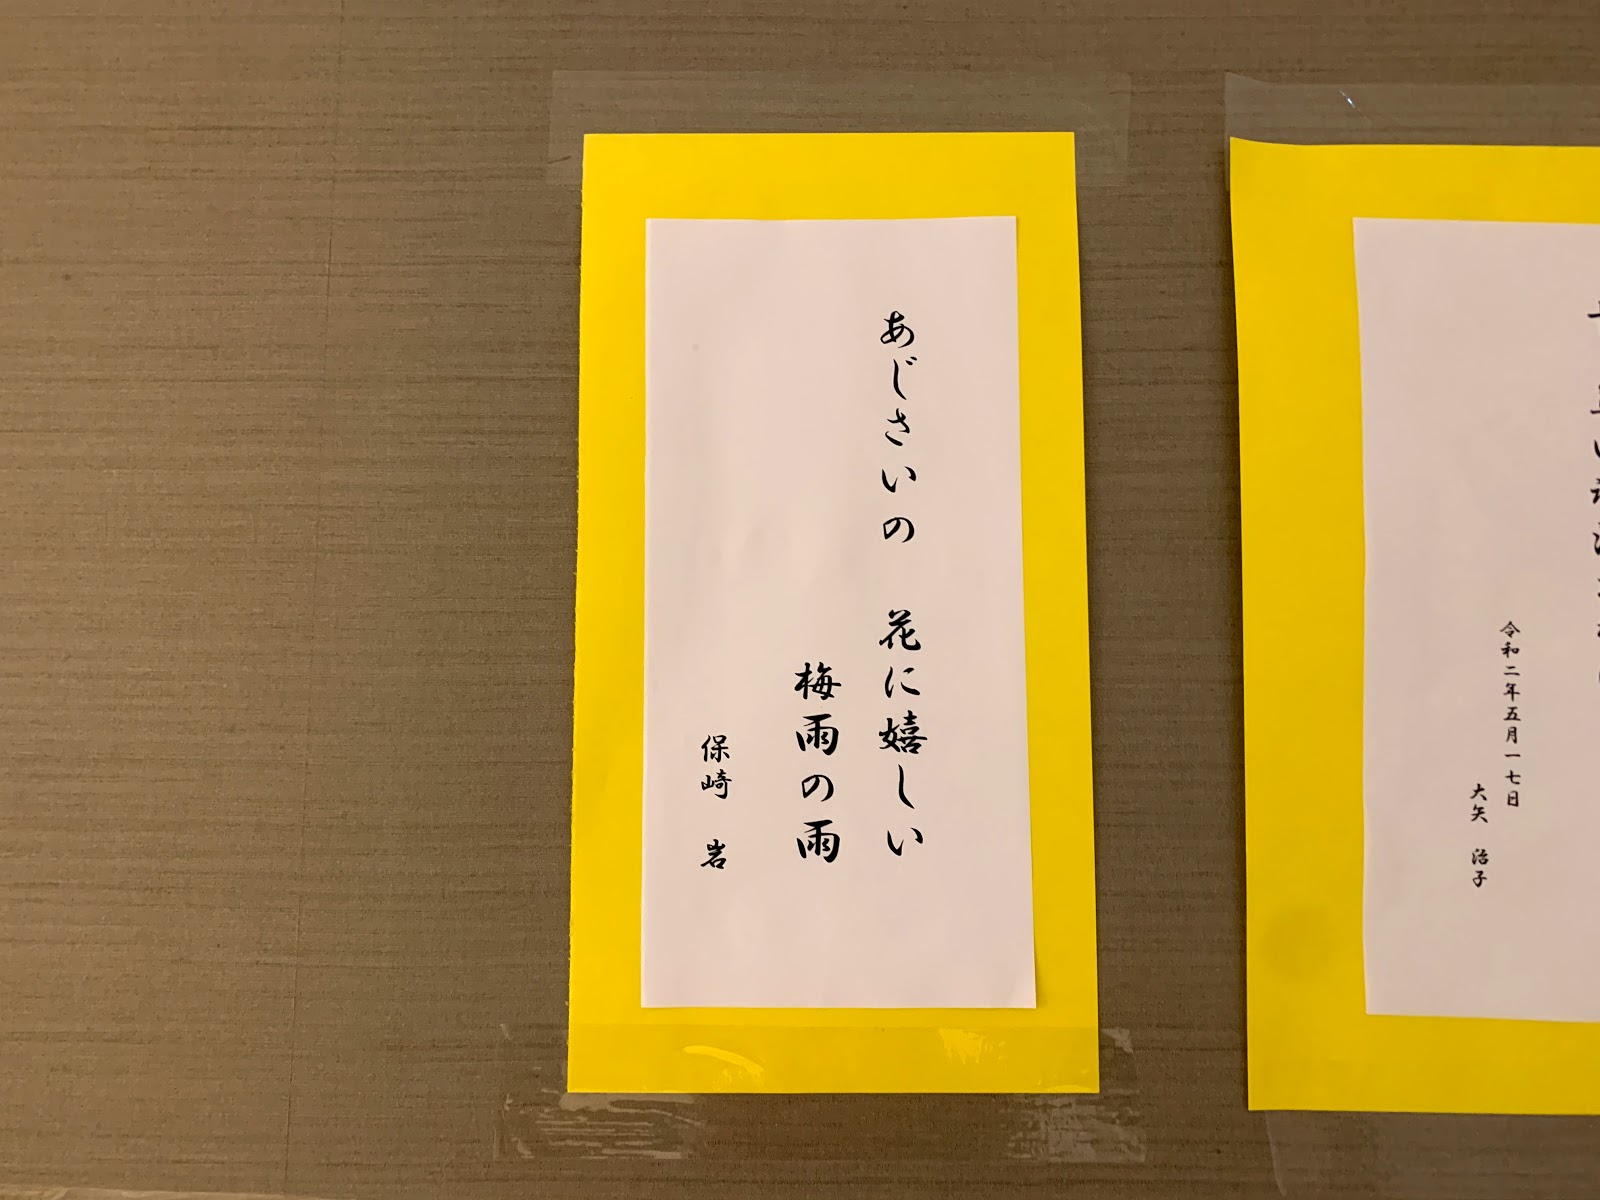 あじさいの　花に嬉しい
梅雨の雨
保崎　岩
令和二年五月一七日
大矢　治子